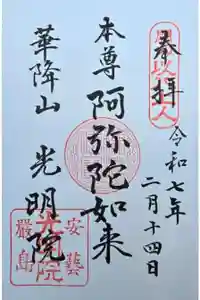 奉拝
令和七年
二月十四日
本尊 阿弥陀如来
華降山 光明院
安藝
光明院
嚴島